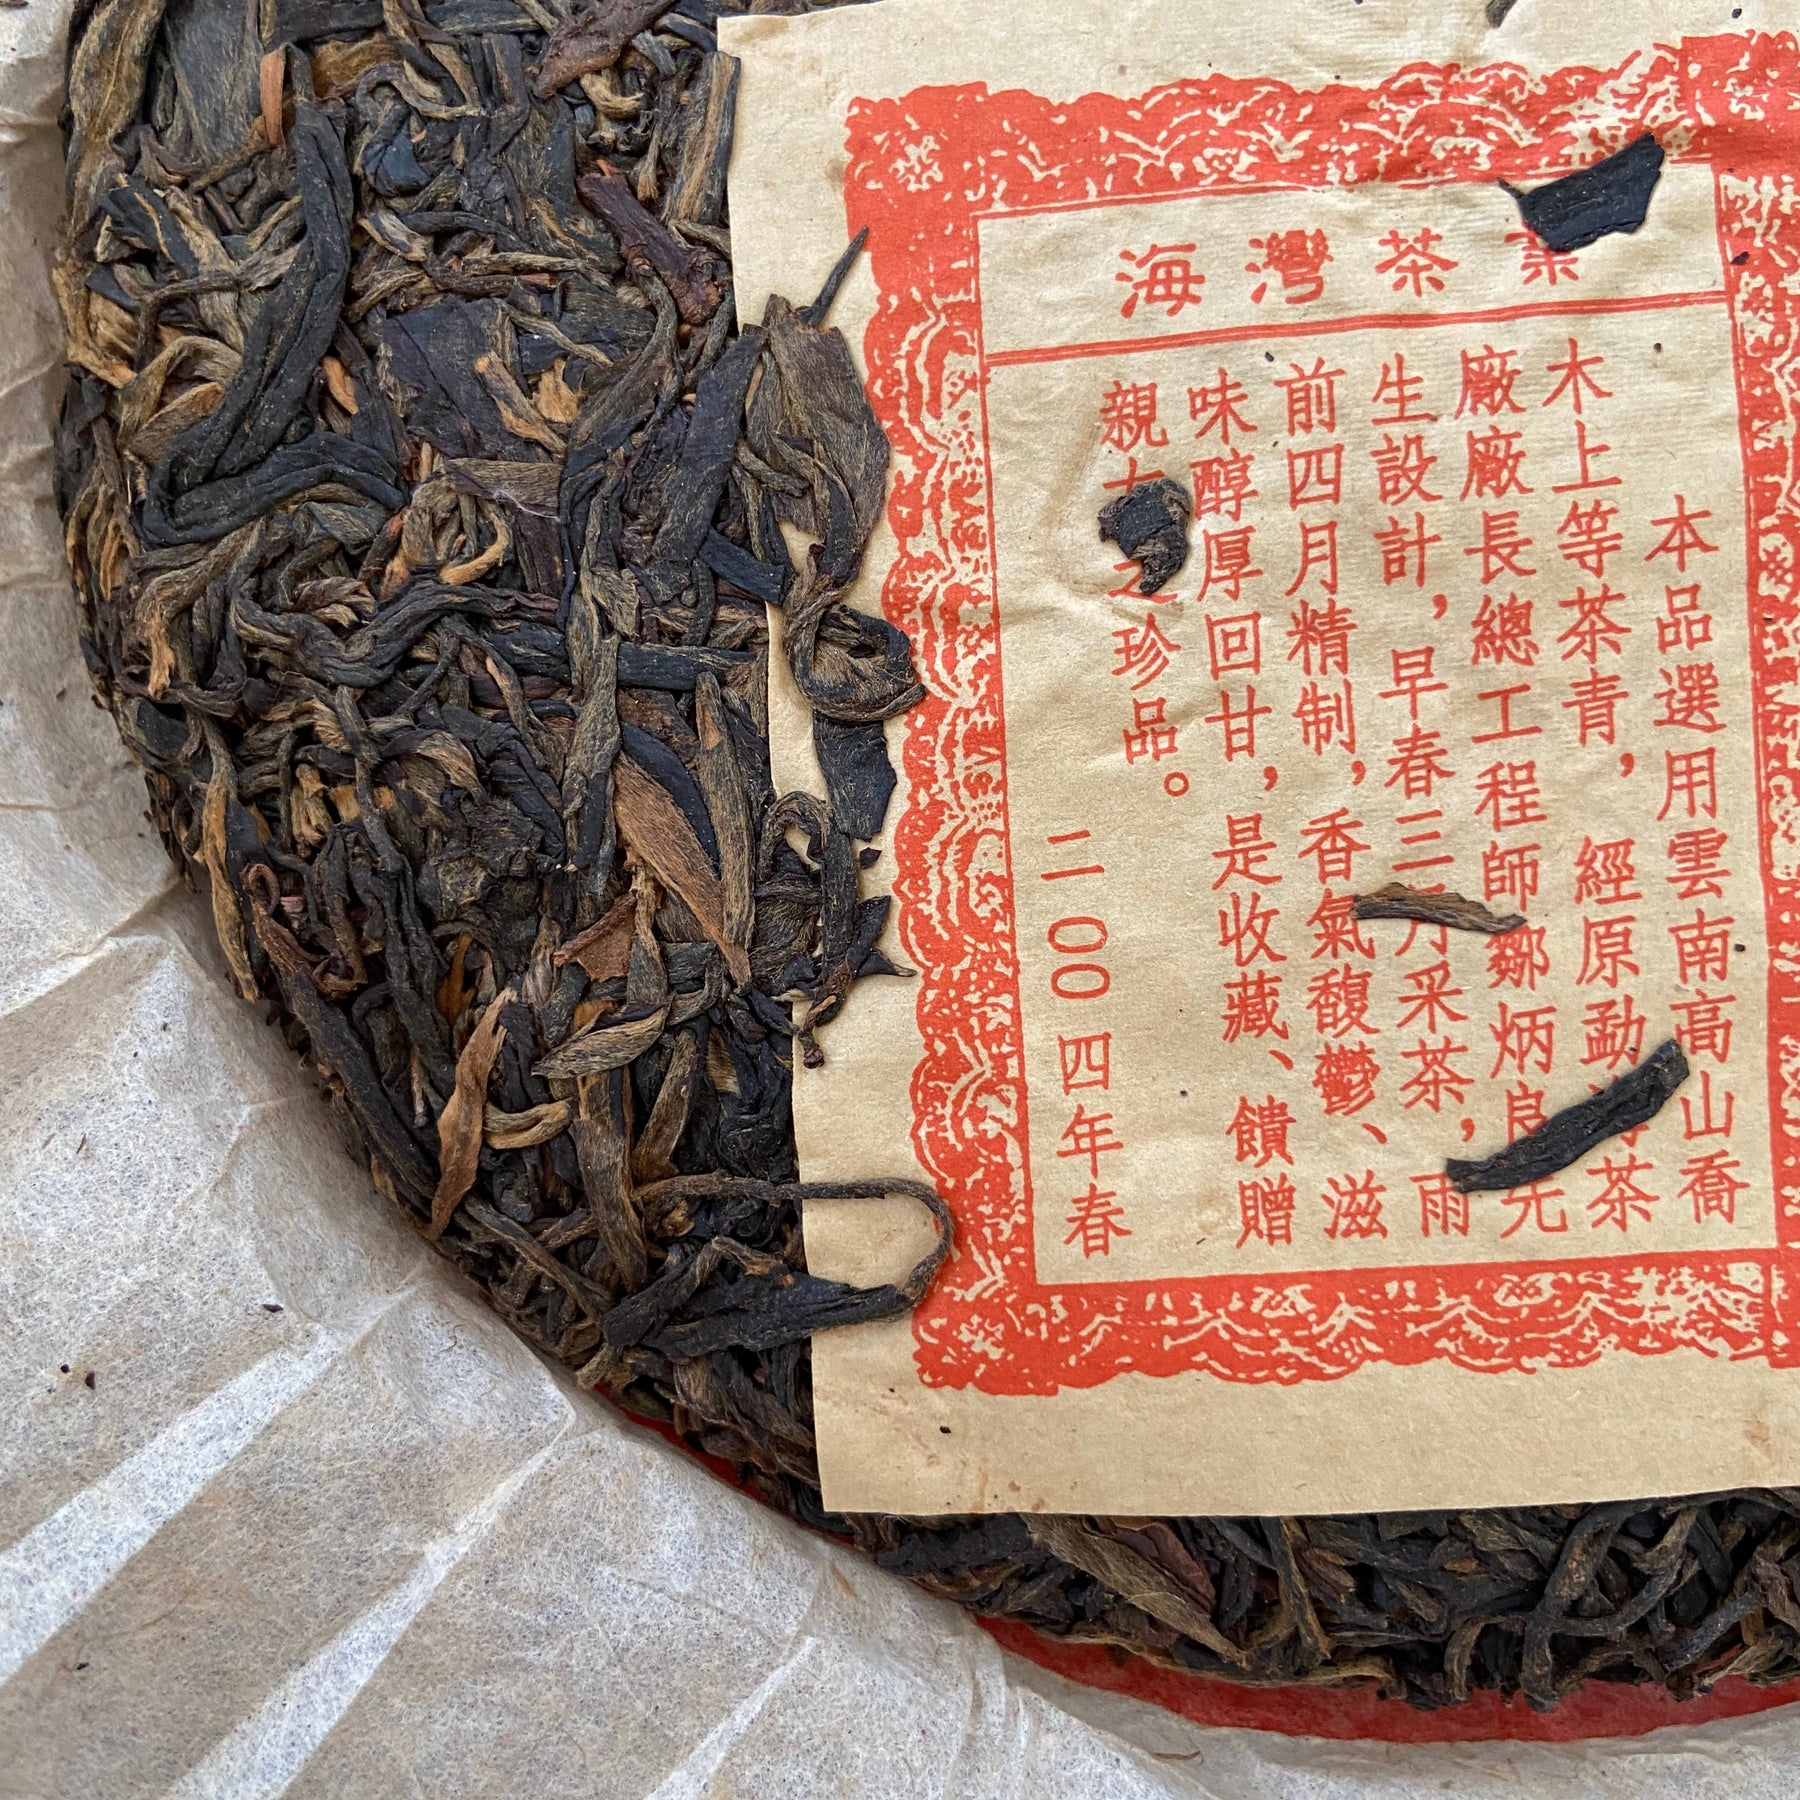 海灣茶業
本品選用雲南高山喬
木上等茶青，經原勐海茶
廠廠長總工程師鄒炳良先
生設計，早春三月采茶，雨
前四月精制，香氣馥鬱、滋
味醇厚回甘，是收藏、饋贈
親友之珍品。
二00四年春